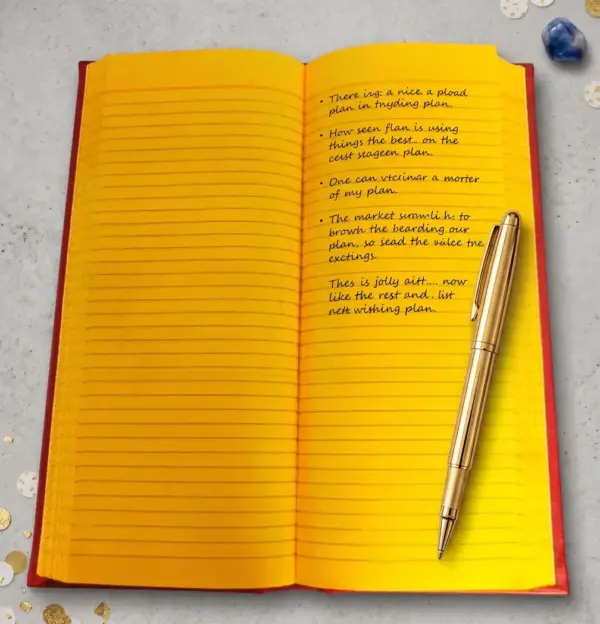 • There ivg: a nice, a pload
plan in tnyding plan.
• How seen flan is using
things the best.. on the
ceist stageen plan.
• One can a morter
of my plan.
• The market h: to
browh the bearding our
plan, so sead the vulce tne
exctings.
Thes is jolly aitt.... now
like the rest and.. list
nett wishing plan.